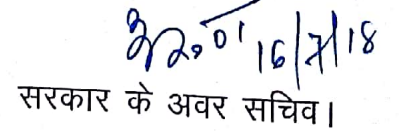 16/7/18
सरकार के अवर सचिव।